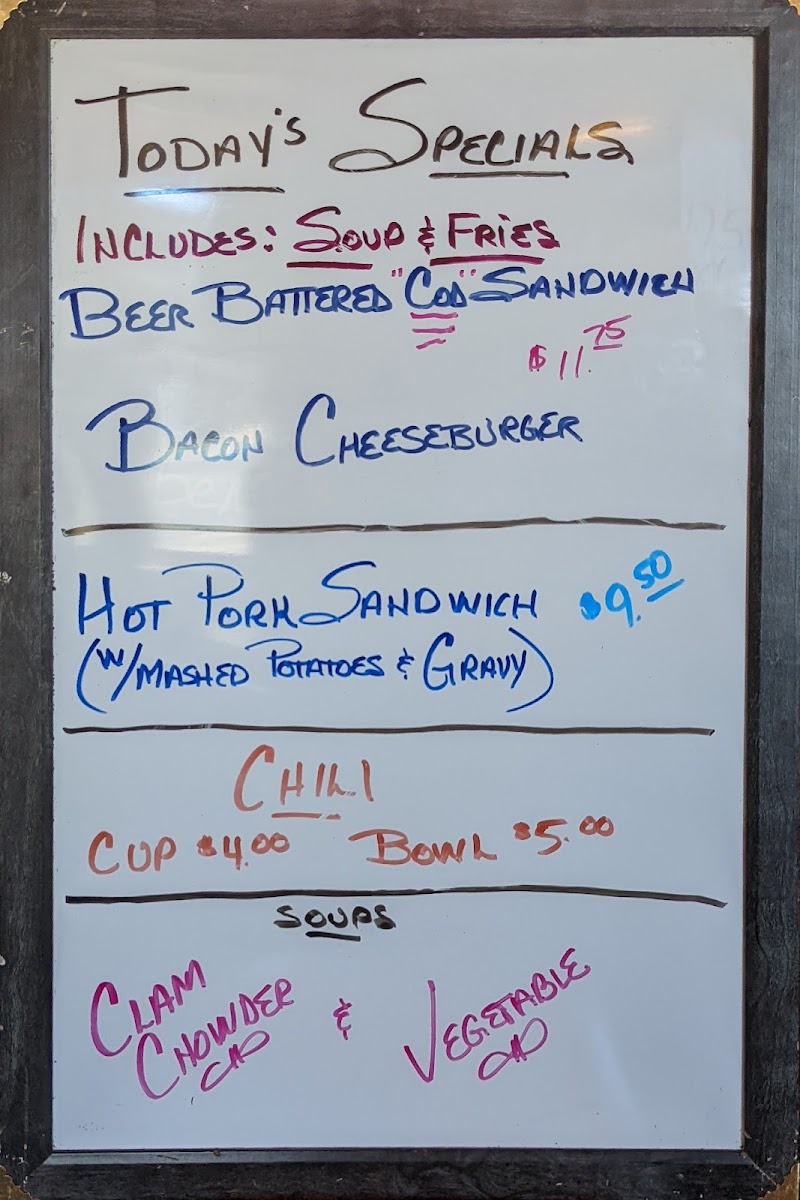 TODAY'S SPECIALS
INCLUDES: SOUP & FRIES
BEER BATTERED "COD" SANDWICH
$11.75
BACON CHEESEBURGER
HOT PORK SANDWICH $9.50
(W/MASHED POTATOES & GRAVY)
CHILI
CUP $4.00 BOWL $5.00
SOUPS
CLAM
CHOWDER & VEGETABLE